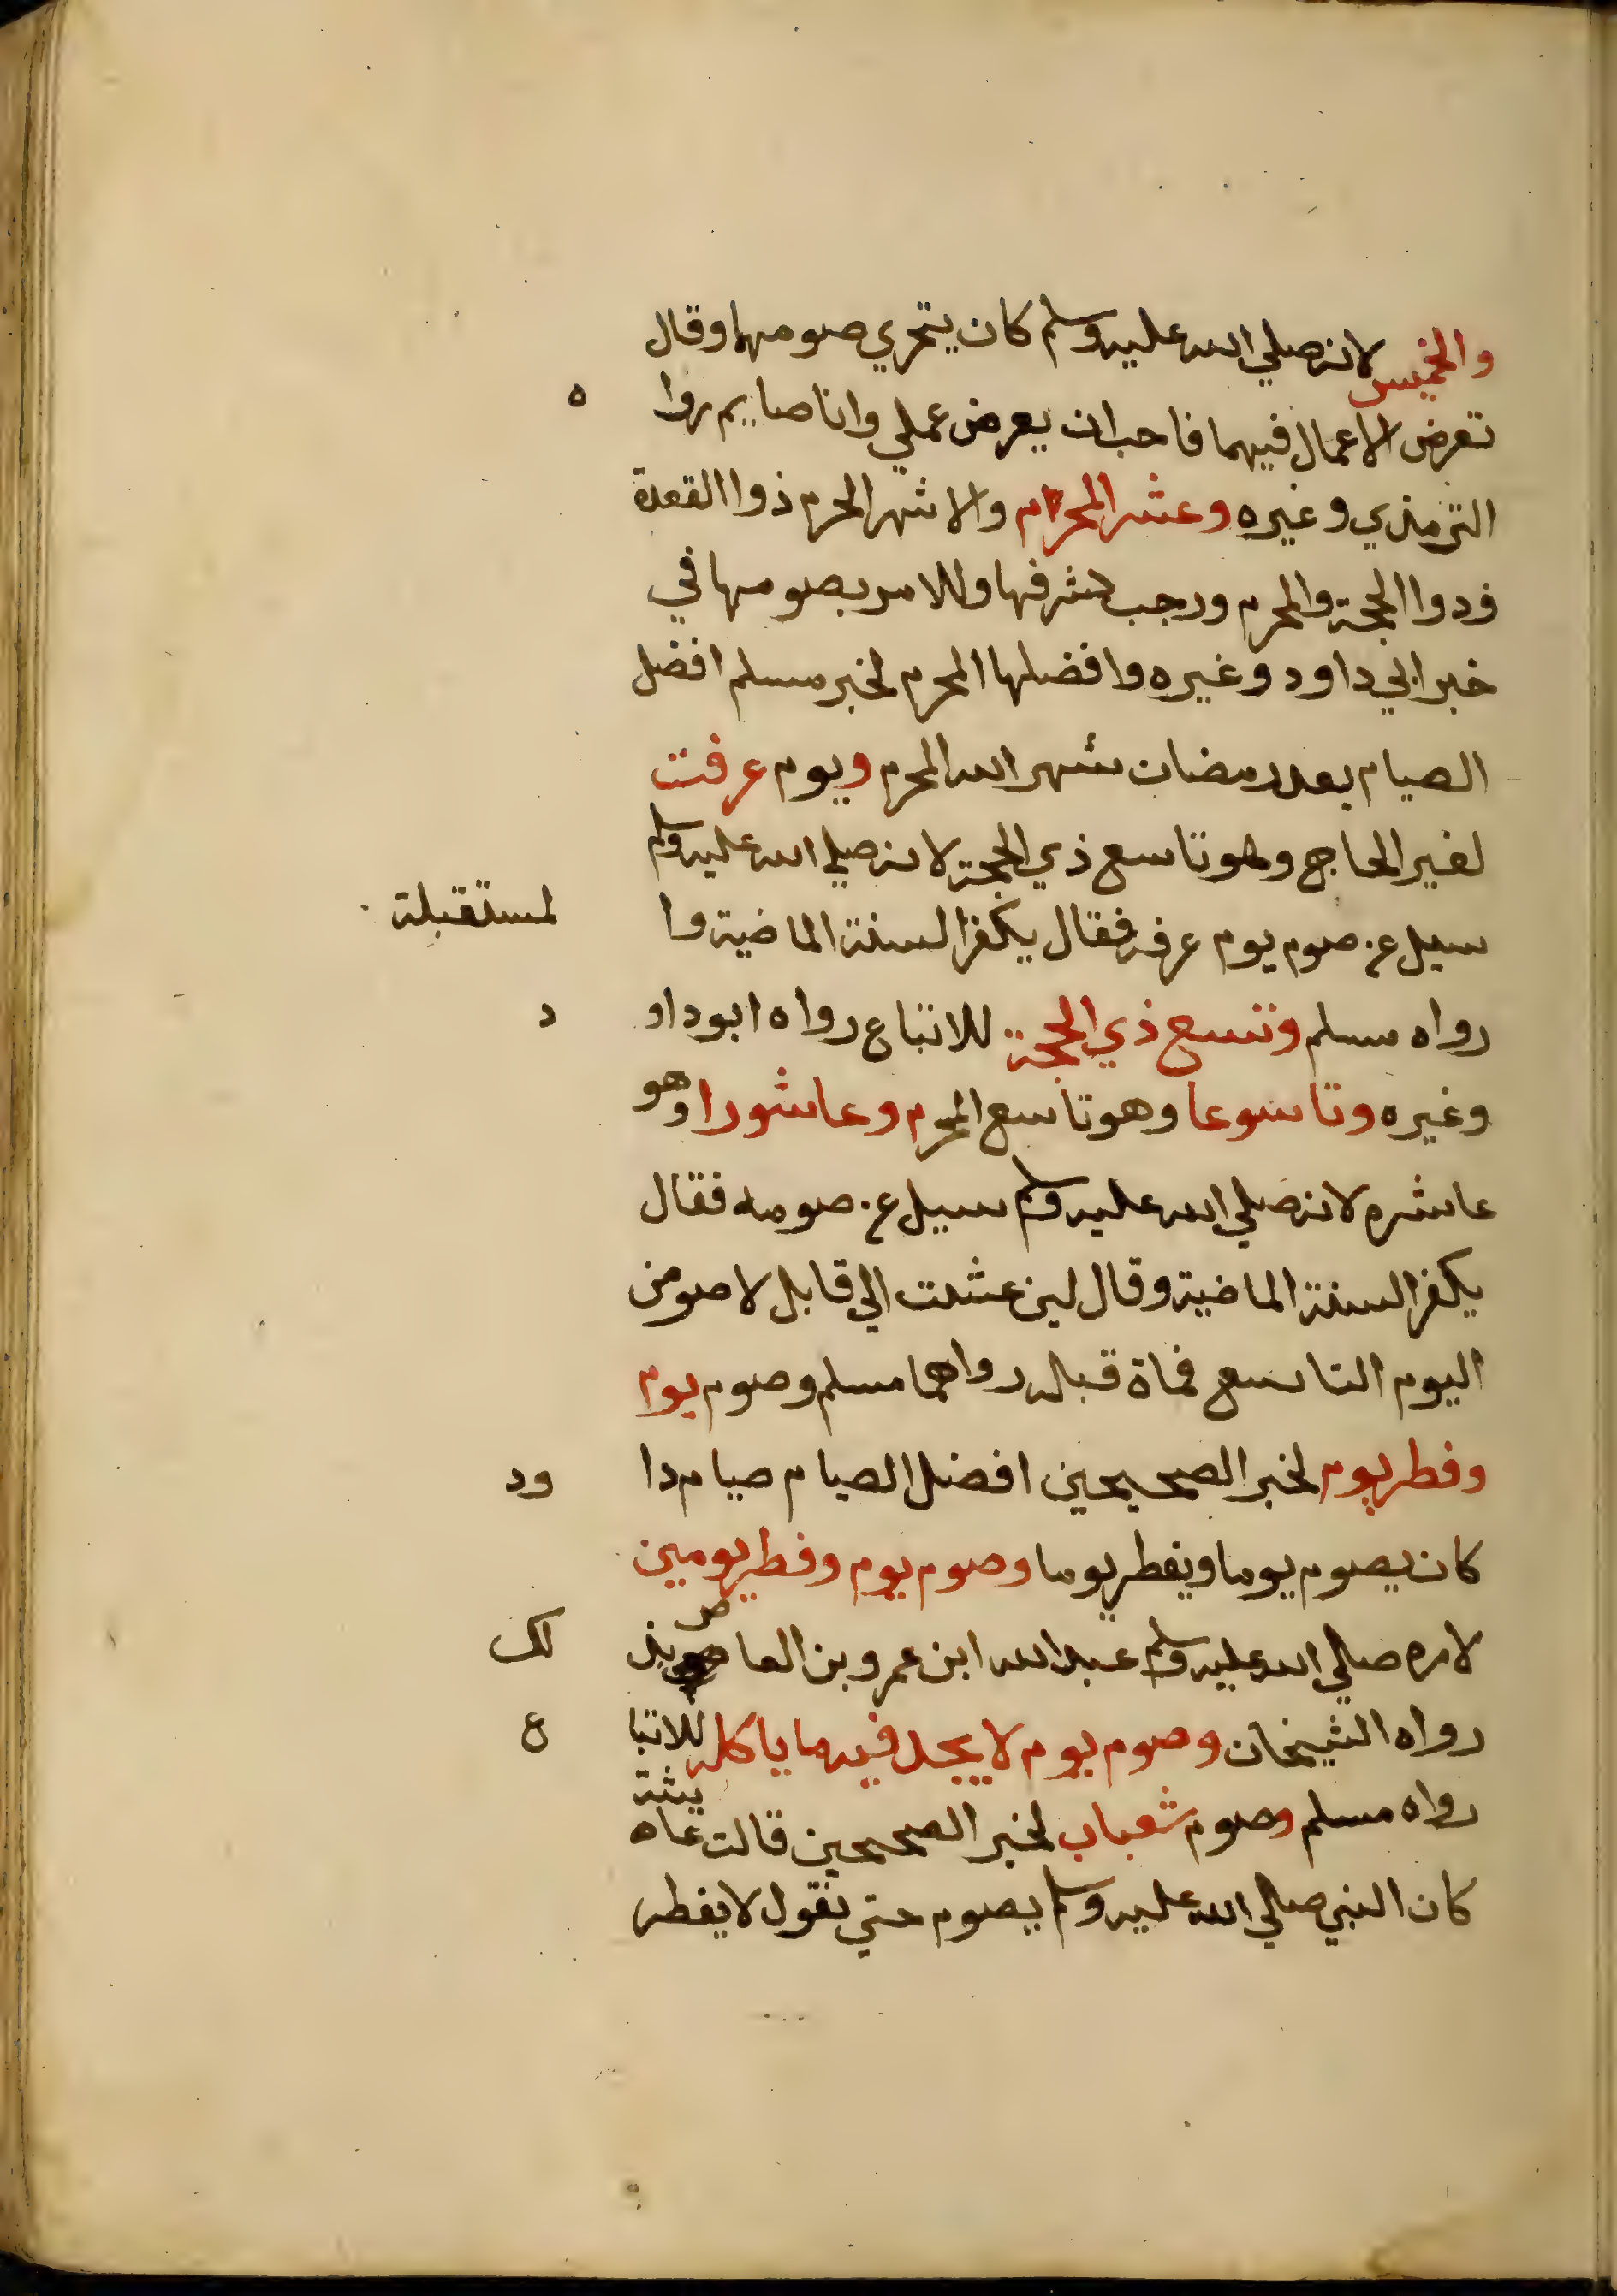 والخميس لانه صلي الله عليه وسلم كان يتحري صومهما وقال
تعرض الاعمال فيهما فاحب ان يعرض عملي وانا صايم روا ه
الترمذي وغيره وعشر المحرم والاشهر الحرم ذوا القعدة
وذوا الحجة والمحرم ورجب لشرفها وللامر بصومها في
خبر ابي داود وغيره وافضلها المحرم لخبر مسلم افضل
الصيام بعد رمضان شهر الله المحرم ويوم عرفت
لغير الحاج وهو تاسع ذي الحجة لانه صلي الله عليه وسلم
سيل عن صوم يوم عرفه فقال يكفر السنة الماضية وا لمستقبلة
رواه مسلم وتسع ذي الحجة للاتباع رواه ابو داو د
وغيره وتاسوعا وهو تاسع المحرم وعاشورا وهو
عاشره لانه صلي الله عليه وسلم سيل عن صومه فقال
يكفر السنة الماضية وقال لين عشت الي قابل لاصومن
اليوم التاسع فماة قبله رواهما مسلم وصوم يوم
وفطر يوم لخبر الصحيحين افضل الصيام صيام دا ود
كان يصوم يوما ويفطر يوما وصوم يوم وفطر يومين
لامره صلي الله عليه وسلم عبد الله ابن عمرو بن العاص بذ لك
رواه الشيخان وصوم يوم لا يجد فيه ما ياكله للاتبا ع
رواه مسلم وصوم شعباب لخبر الصحيحين قالت عا يشة
كان النبي صلي الله عليه وسلم يصوم حتي نقول لا يفطر